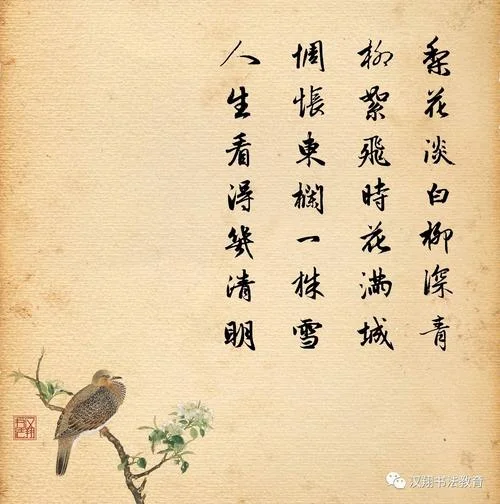 梨花淡白柳深青
柳絮飛時花滿城
惆悵東欄一株雪
人生看得幾清明
汉翔书法教育